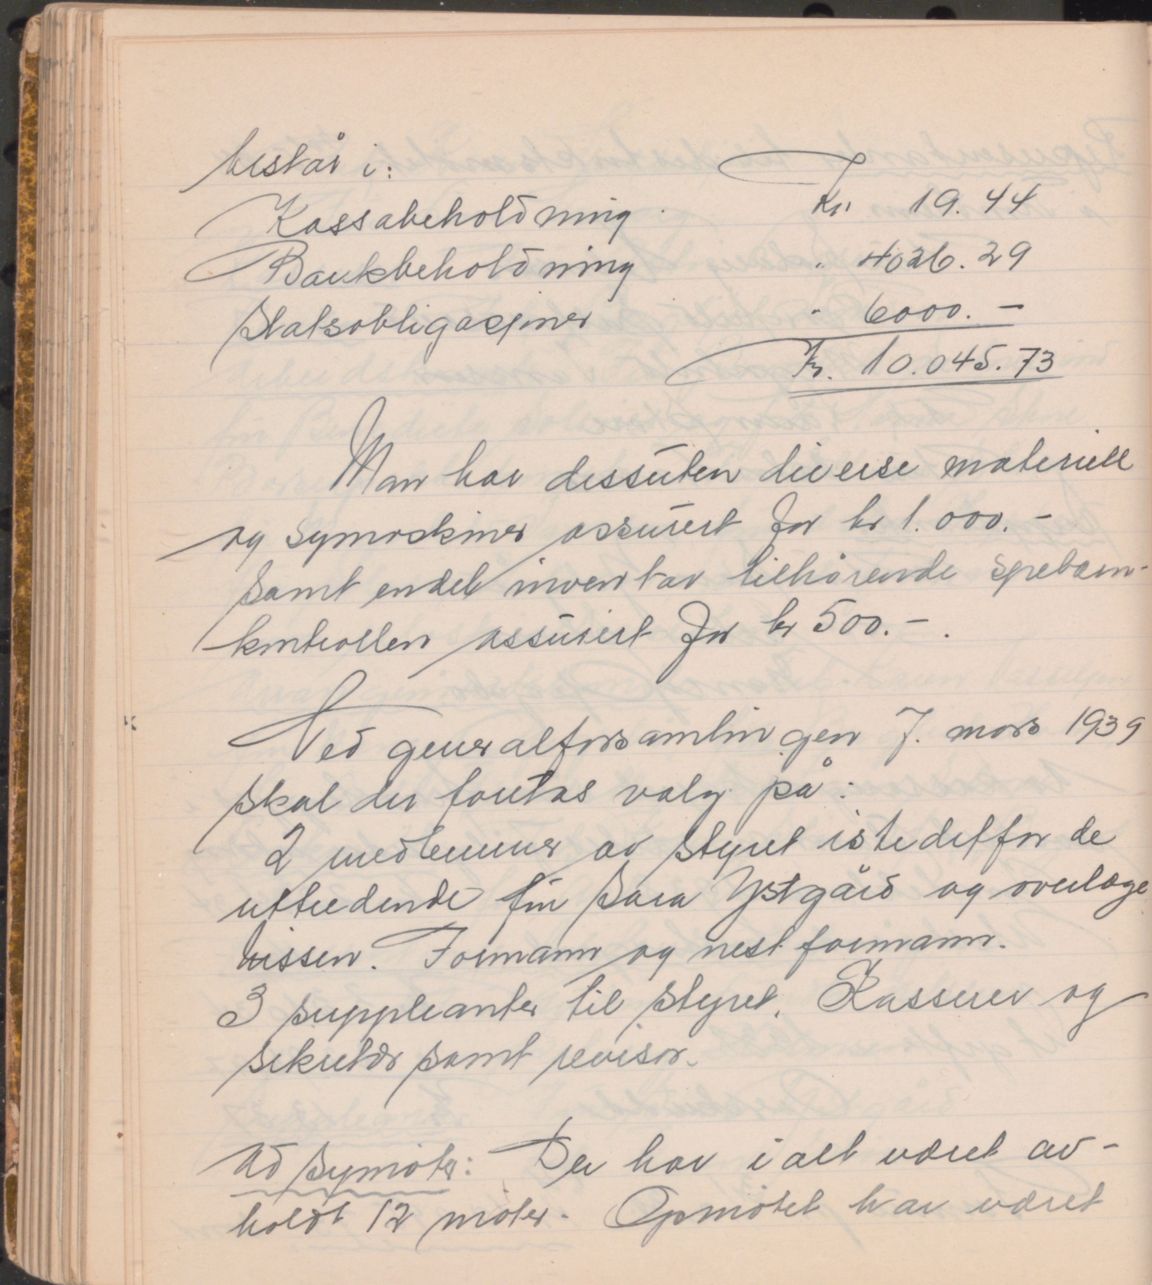 består i:
Kassabeholdning Kr. 19.44
Bankbeholdning " 4026.29
Statsobligasjoner " 6000.-
Kr. 10.045.73
Man har dessuten diverse materiell
og symaskiner assurert for kr 1.000.-
samt endel inventar tilhørende spebarn-
kontrollen assurert for kr 500.-.
Ved generalforsamlingen 7. mars 1939
skal der foretas valg på:
2 medlemmer av styret istedetfor de
uttredende fru Sara Ystgård og overlæge
Nissen. Formann og nestformann.
3 suppleanter til styret. Kasserer og
sekretær samt revisor.
Ad symøter: Der har i alt været av-
holdt 12 møter. Opmøtet har været